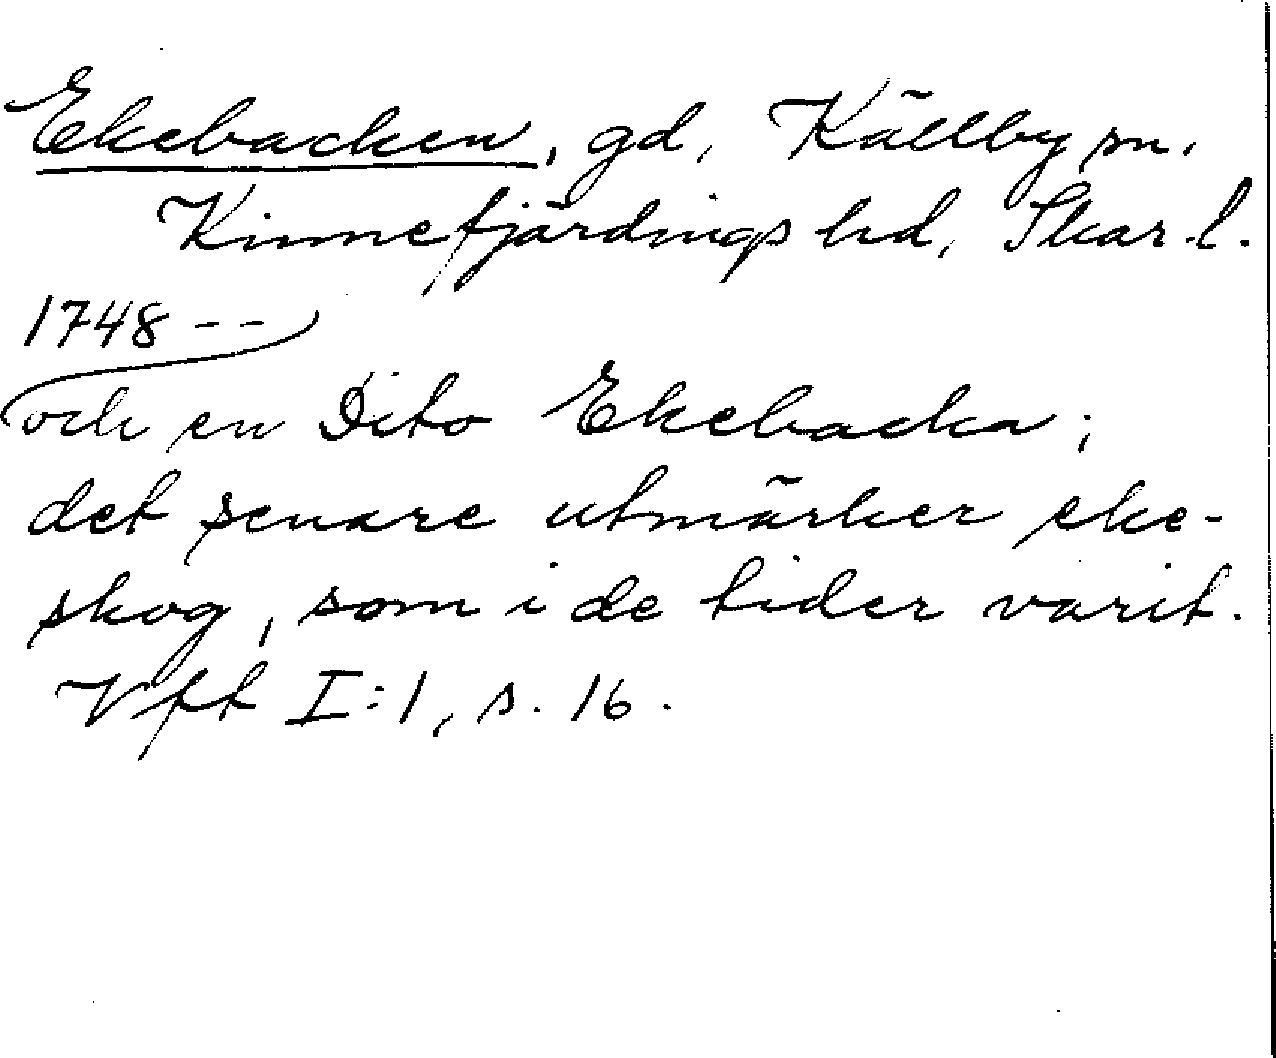 Ekebacken, gd, Källby sn,
Kinnefjärdings hd, Skar. l.
1748 - -
och en Dito Ekebacka;
det senare utmärker eke-
skog, som i de tider varit.
Vfft I:1, s. 16.